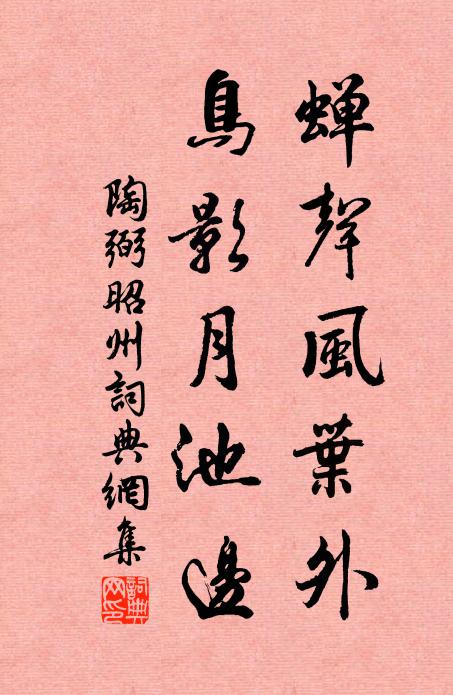 蟬聲風葉外
鳥影月池邊
陶弼昭州詞典網集
詞典網印